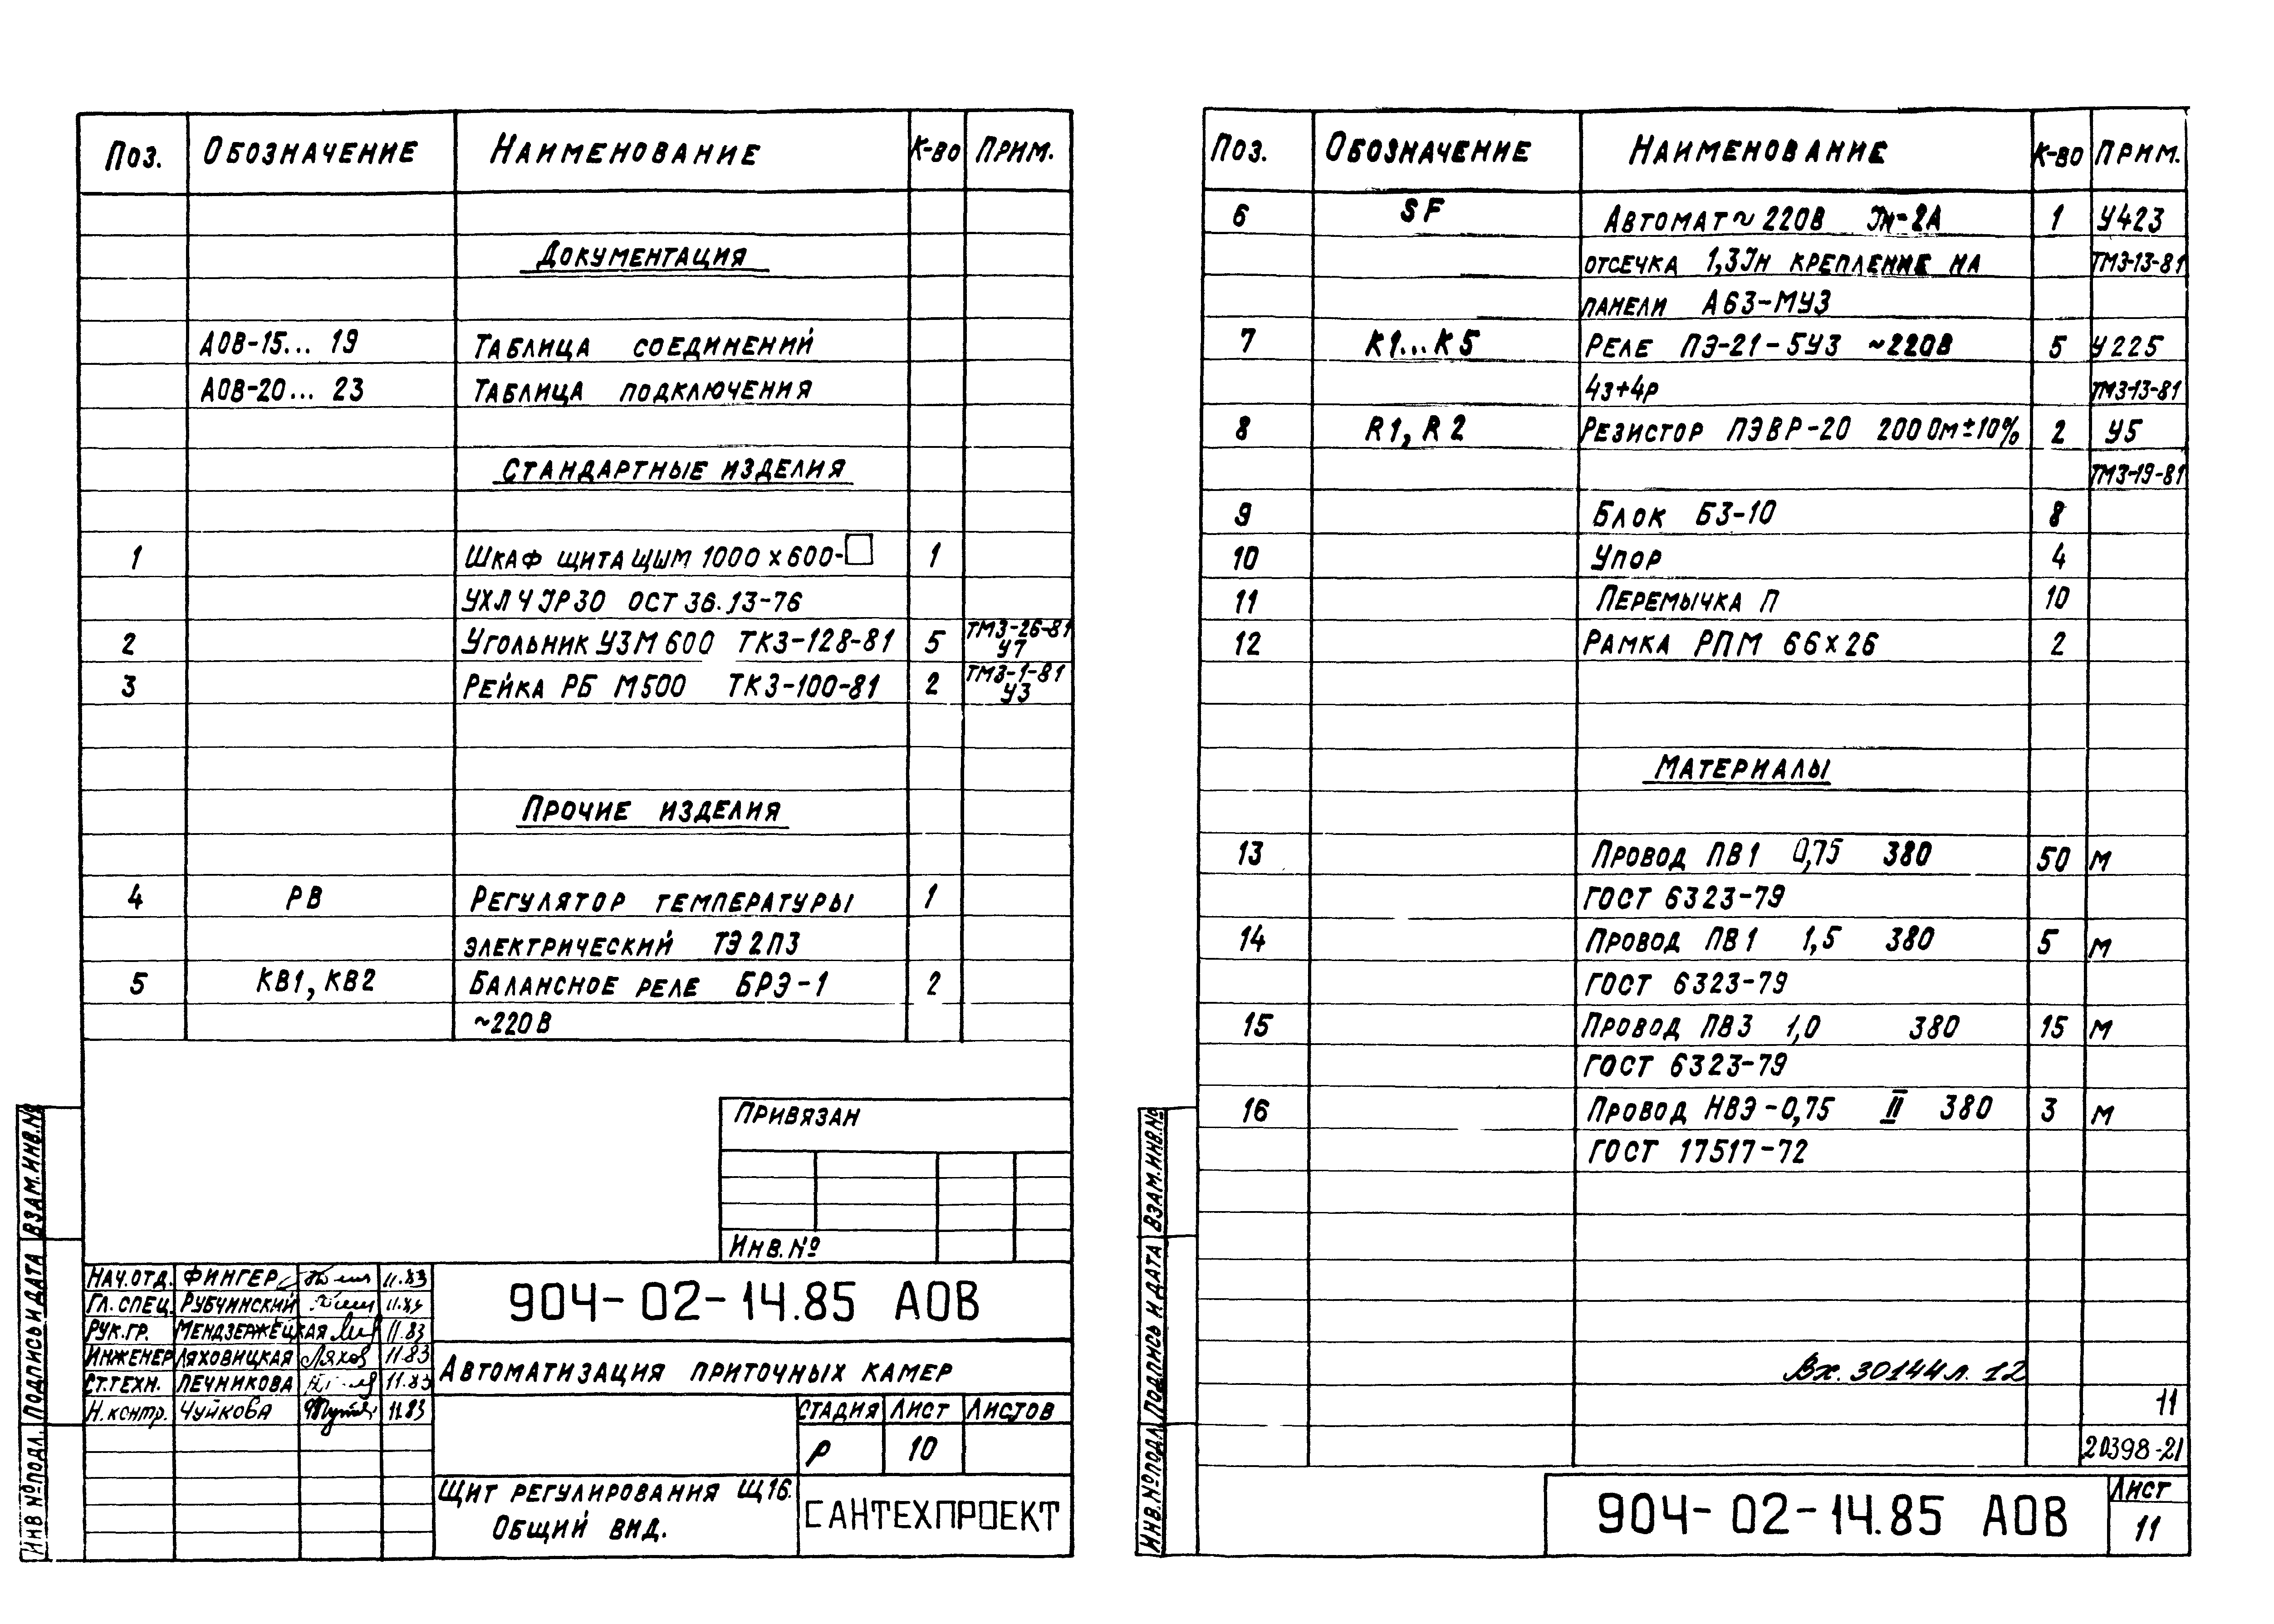 Поз. Обозначение Наименование К-во Прим.
Документация
АОВ-15... 19 Таблица соединений
АОВ-20... 23 Таблица подключения
Стандартные изделия
1 Шкаф щита ЩШМ 1000 х 600-□ 1
УХЛ Ч IР30 ОСТ 36.13-76
2 Угольник УЗМ 600 ТК3-128-81 5 ТМ3-26-81 У7
3 Рейка РБ М500 ТК3-100-81 2 ТМ3-1-81 У3
Прочие изделия
4 РВ Регулятор температуры 1
электрический ТЭ2П3
5 КВ1, КВ2 Балансное реле БРЭ-1 2
~220В
Привязан
Инв.№
Нач.отд. Фингер 11.83
Гл. спец. Рубчинский
Рук.гр. Мендзержецкая 11.83
Инженер Ляховицкая 11.83
Ст.техн. Печникова 11.83
Н. контр. Чуйкова 11.83
904-02-14.85 АОВ
Автоматизация приточных камер
Стадия Лист Листов
Р 10
Щит регулирования Щ16.
Общий вид.
САНТЕХПРОЕКТ
Инв №подл. Подпись и дата Взам.инв.№
Поз. Обозначение Наименование К-во Прим.
6 SF Автомат ~ 220В Iн-2А 1 У423
отсечка 1,3Iн крепление на ТМ3-13-81
панели А63-МУ3
7 К1...К5 Реле ПЭ-21-5У3 ~220В 5 У225
4з+4р ТМ3-13-81
8 R1, R2 Резистор ПЭВР-20 200 Ом±10% 2 У5
ТМ3-19-81
9 Блок БЗ-10 8
10 Упор 4
11 Перемычка П 10
12 Рамка РПМ 66х26 2
Материалы
13 Провод ПВ1 0,75 380 50 м
ГОСТ 6323-79
14 Провод ПВ1 1,5 380 5 м
ГОСТ 6323-79
15 Провод ПВ3 1,0 380 15 м
ГОСТ 6323-79
16 Провод НВЭ-0,75 II 380 3 м
ГОСТ 17517-72
Вх. 30144 л. 12
11
20398-21
904-02-14.85 АОВ
Лист
11
Инв.№подл. Подпись и дата Взам.инв.№